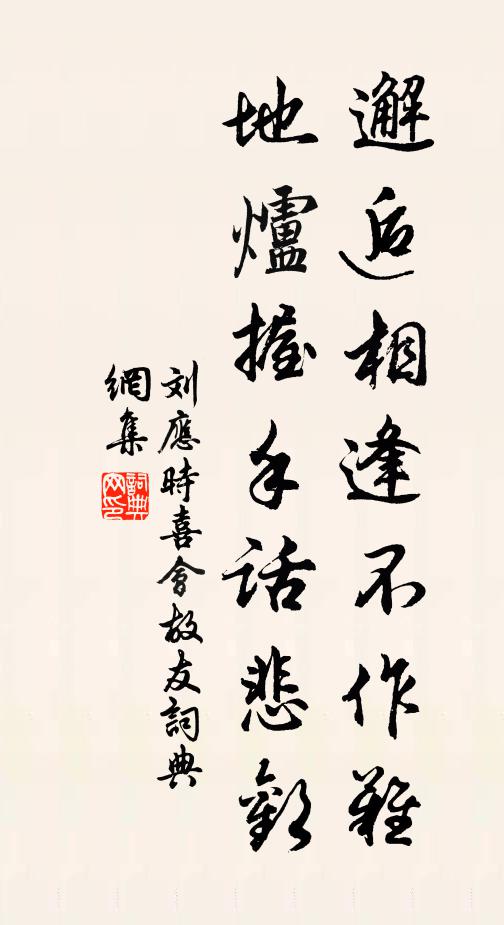 邂逅相逢不作難
地爐握手話悲歡
刘應時喜會故友詞典
網集
詞典网印